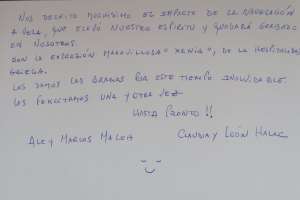 EL IMPACTO DE LA NAVEGACIÓN
A VELA, QUE ELEVÓ NUESTRO ESPÍRITU Y QUEDARÁ GRABADO
EN NOSOTROS.
CON LA EXPRESIÓN MARAVILLOSA "XENIA", DE LA HOSPITALIDAD
GRIEGA.
LES DAMOS LAS GRACIAS POR ESTE TIEMPO INOLVIDABLE.
LOS FELICITAMOS UNA Y OTRA VEZ
HASTA PRONTO!!
ALE Y MARCOS
CLAUDIA Y LEÓN HALAC